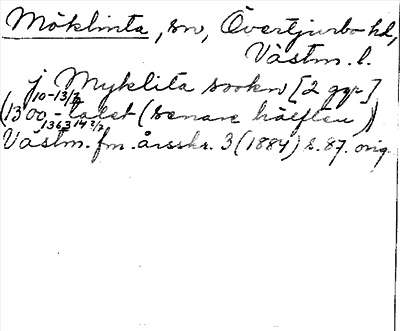 Möklinta, sn, Övertjurbo hd,
Västm. l.
j Myklita sookn [2 ggr]
10-13/7
(1300-talet (senare hälften))
1363 14 2/2
Västm. fm. årsskr. 3 (1884) s. 87. orig.